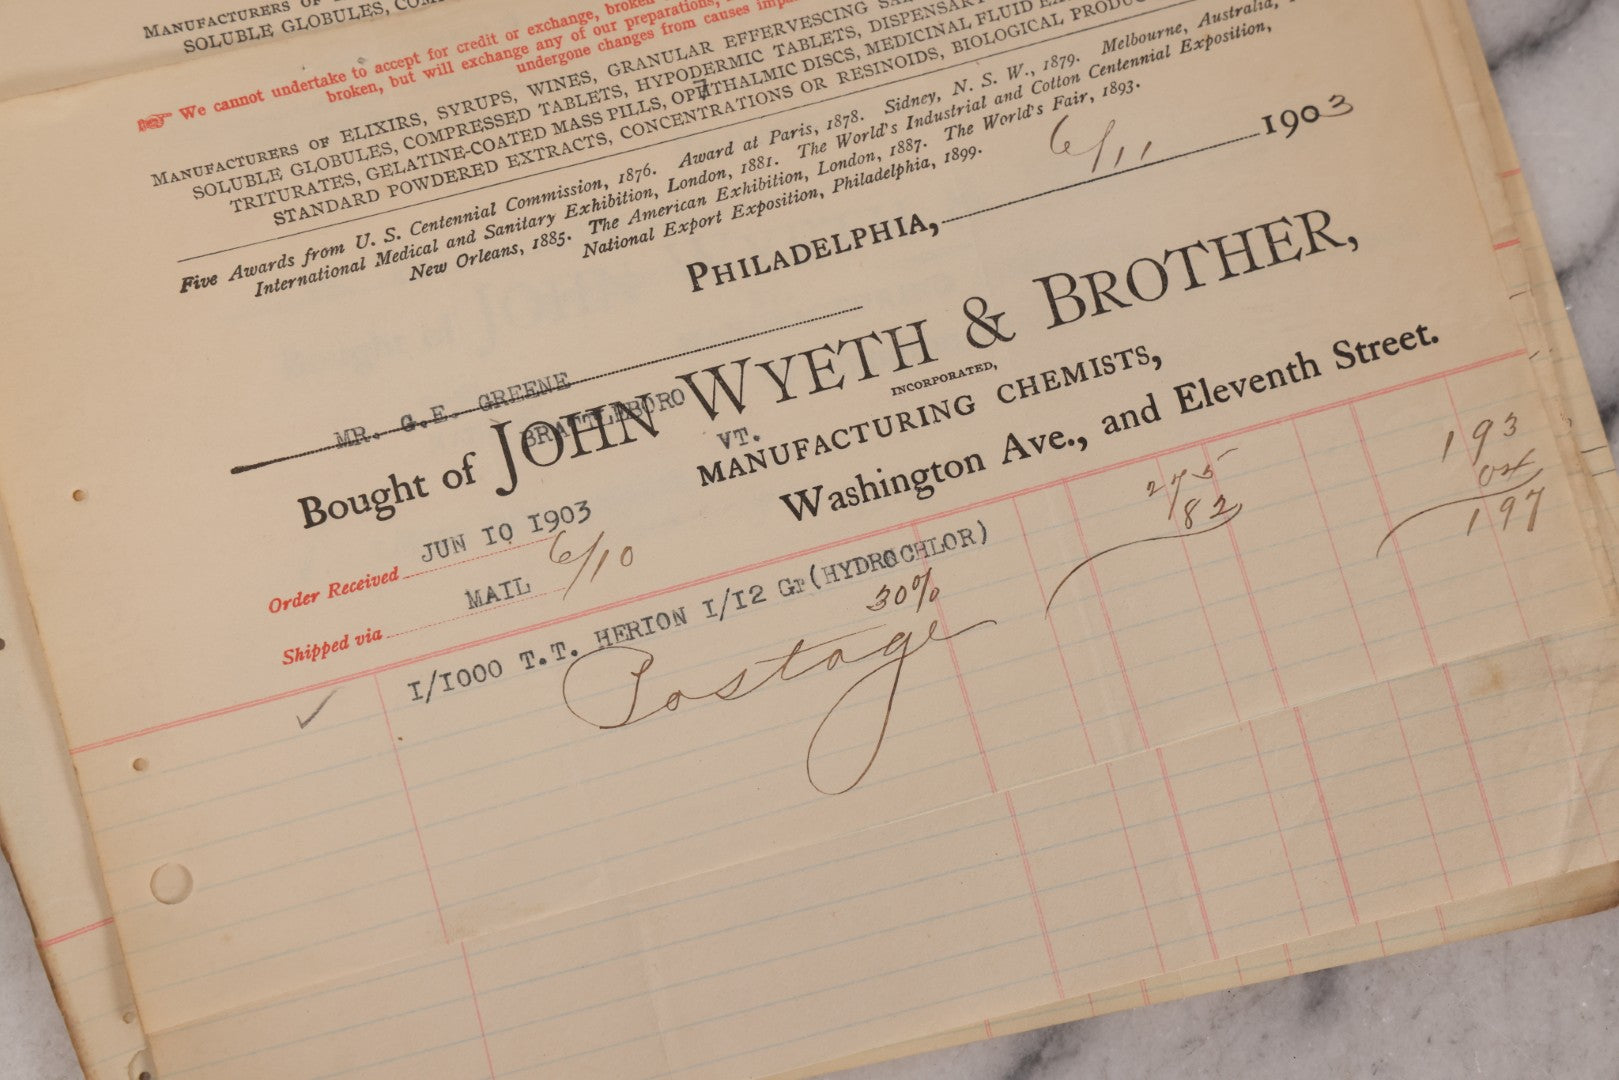 MANUFACTURERS OF
SOLUBLE GLOBULES,
We cannot undertake to accept for credit or exchange, broken
broken, but will exchange any of our preparations,
undergone changes from causes
MANUFACTURERS OF ELIXIRS, SYRUPS, WINES, GRANULAR EFFERVESCING
SOLUBLE GLOBULES, COMPRESSED TABLETS, HYPODERMIC TABLETS, DISPENSARY
TRITURATES, GELATINE-COATED MASS PILLS, OPHTHALMIC DISCS, MEDICINAL FLUID
STANDARD POWDERED EXTRACTS, CONCENTRATIONS OR RESINOIDS, BIOLOGICAL
Five Awards from U. S. Centennial Commission, 1876. Award at Paris, 1878. Sidney, N. S. W., 1879. Melbourne, Australia,
International Medical and Sanitary Exhibition, London, 1881. The World's Industrial and Cotton Centennial Exposition,
New Orleans, 1885. The American Exhibition, London, 1887. The World's Fair, 1893.
National Export Exposition, Philadelphia, 1899.
PHILADELPHIA, 6/11 1903
MR. G.E. GREENE
BRATTLEBORO
VT.
Bought of JOHN WYETH & BROTHER,
INCORPORATED,
MANUFACTURING CHEMISTS,
Washington Ave., and Eleventh Street.
Order Received JUN 10 1903
Shipped via MAIL 6/10
1/1000 T.T. HERION 1/12 Gr(HYDROCHLOR) 275 193
30% 82 04
Postage 197